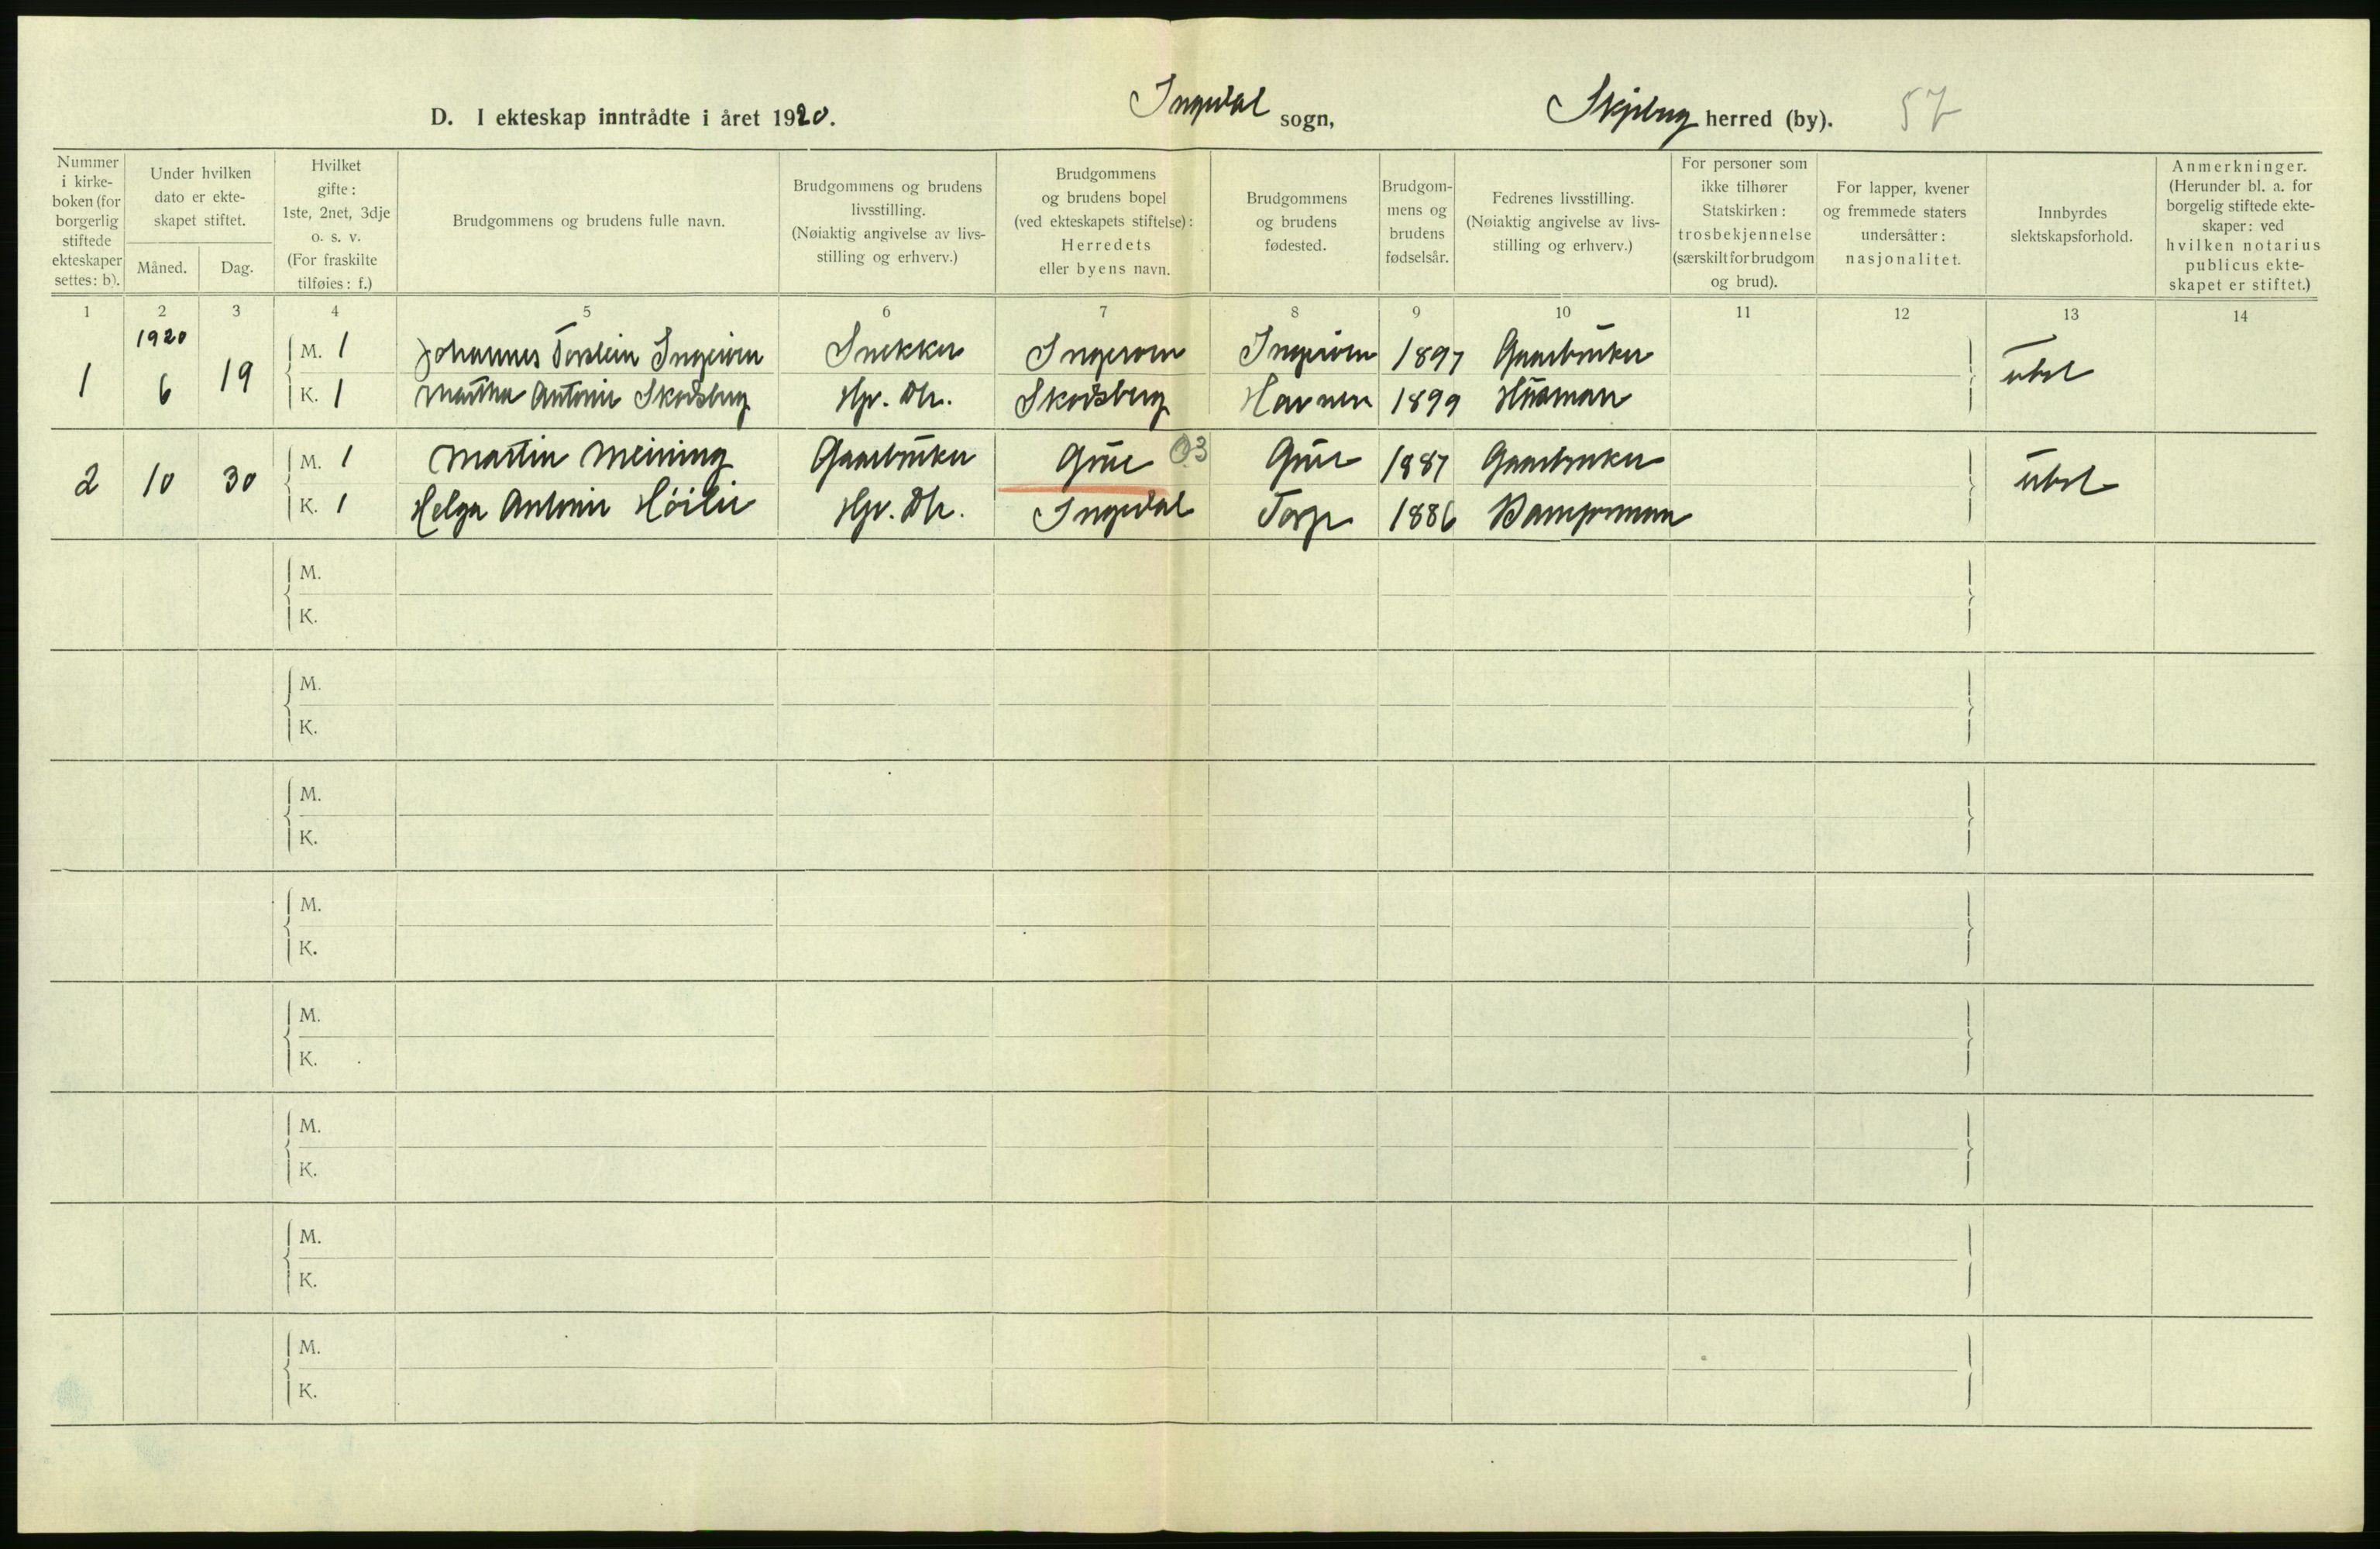 D. I ekteskap inntrådte i året 1920. Ingedal sogn, Skjeberg herred (by). 57
Nummer i kirkeboken (for borgerlig stiftede ekteskaper settes: b).
Under hvilken dato er ekteskapet stiftet.
Måned. Dag.
Hvilket gifte: 1ste, 2net, 3dje o. s. v. (For fraskilte tilføies: f.)
Brudgommens og brudens fulle navn.
Brudgommens og brudens livsstilling. (Nøiaktig angivelse av livsstilling og erhverv.)
Brudgommens og brudens bopel (ved ekteskapets stiftelse): Herredets eller byens navn.
Brudgommens og brudens fødested.
Brudgommens og brudens fødselsår.
Fedrenes livsstilling. (Nøiaktig angivelse av livsstilling og erhverv.)
For personer som ikke tilhører Statskirken: trosbekjennelse (særskilt for brudgom og brud).
For lapper, kvener og fremmede staters undersåtter: nasjonalitet.
Innbyrdes slektskapsforhold.
Anmerkninger. (Herunder bl. a. for borgelig stiftede ekteskaper: ved hvilken notarius publicus ekteskapet er stiftet.)
1 2 3 4 5 6 7 8 9 10 11 12 13 14
1920
1 6 19 M. 1 Johannes Torstein Ingerøen Snekker Ingerøen Ingerøen 1897 Gaardbruker ubsl
K. 1 Martha Antonie Skodsberg Hv. Dtr. Skodsberg Havnen 1899 Husman
2 10 30 M. 1 Martin Meining Gaardbruker Grue 03 Grue 1887 Gaardbruker ubsl
K. 1 Helga Antonie Höilie Hv. Dtr. Ingedal Torp 1886
M.
K.
M.
K.
M.
K.
M.
K.
M.
K.
M.
K.
M.
K.
M.
K.